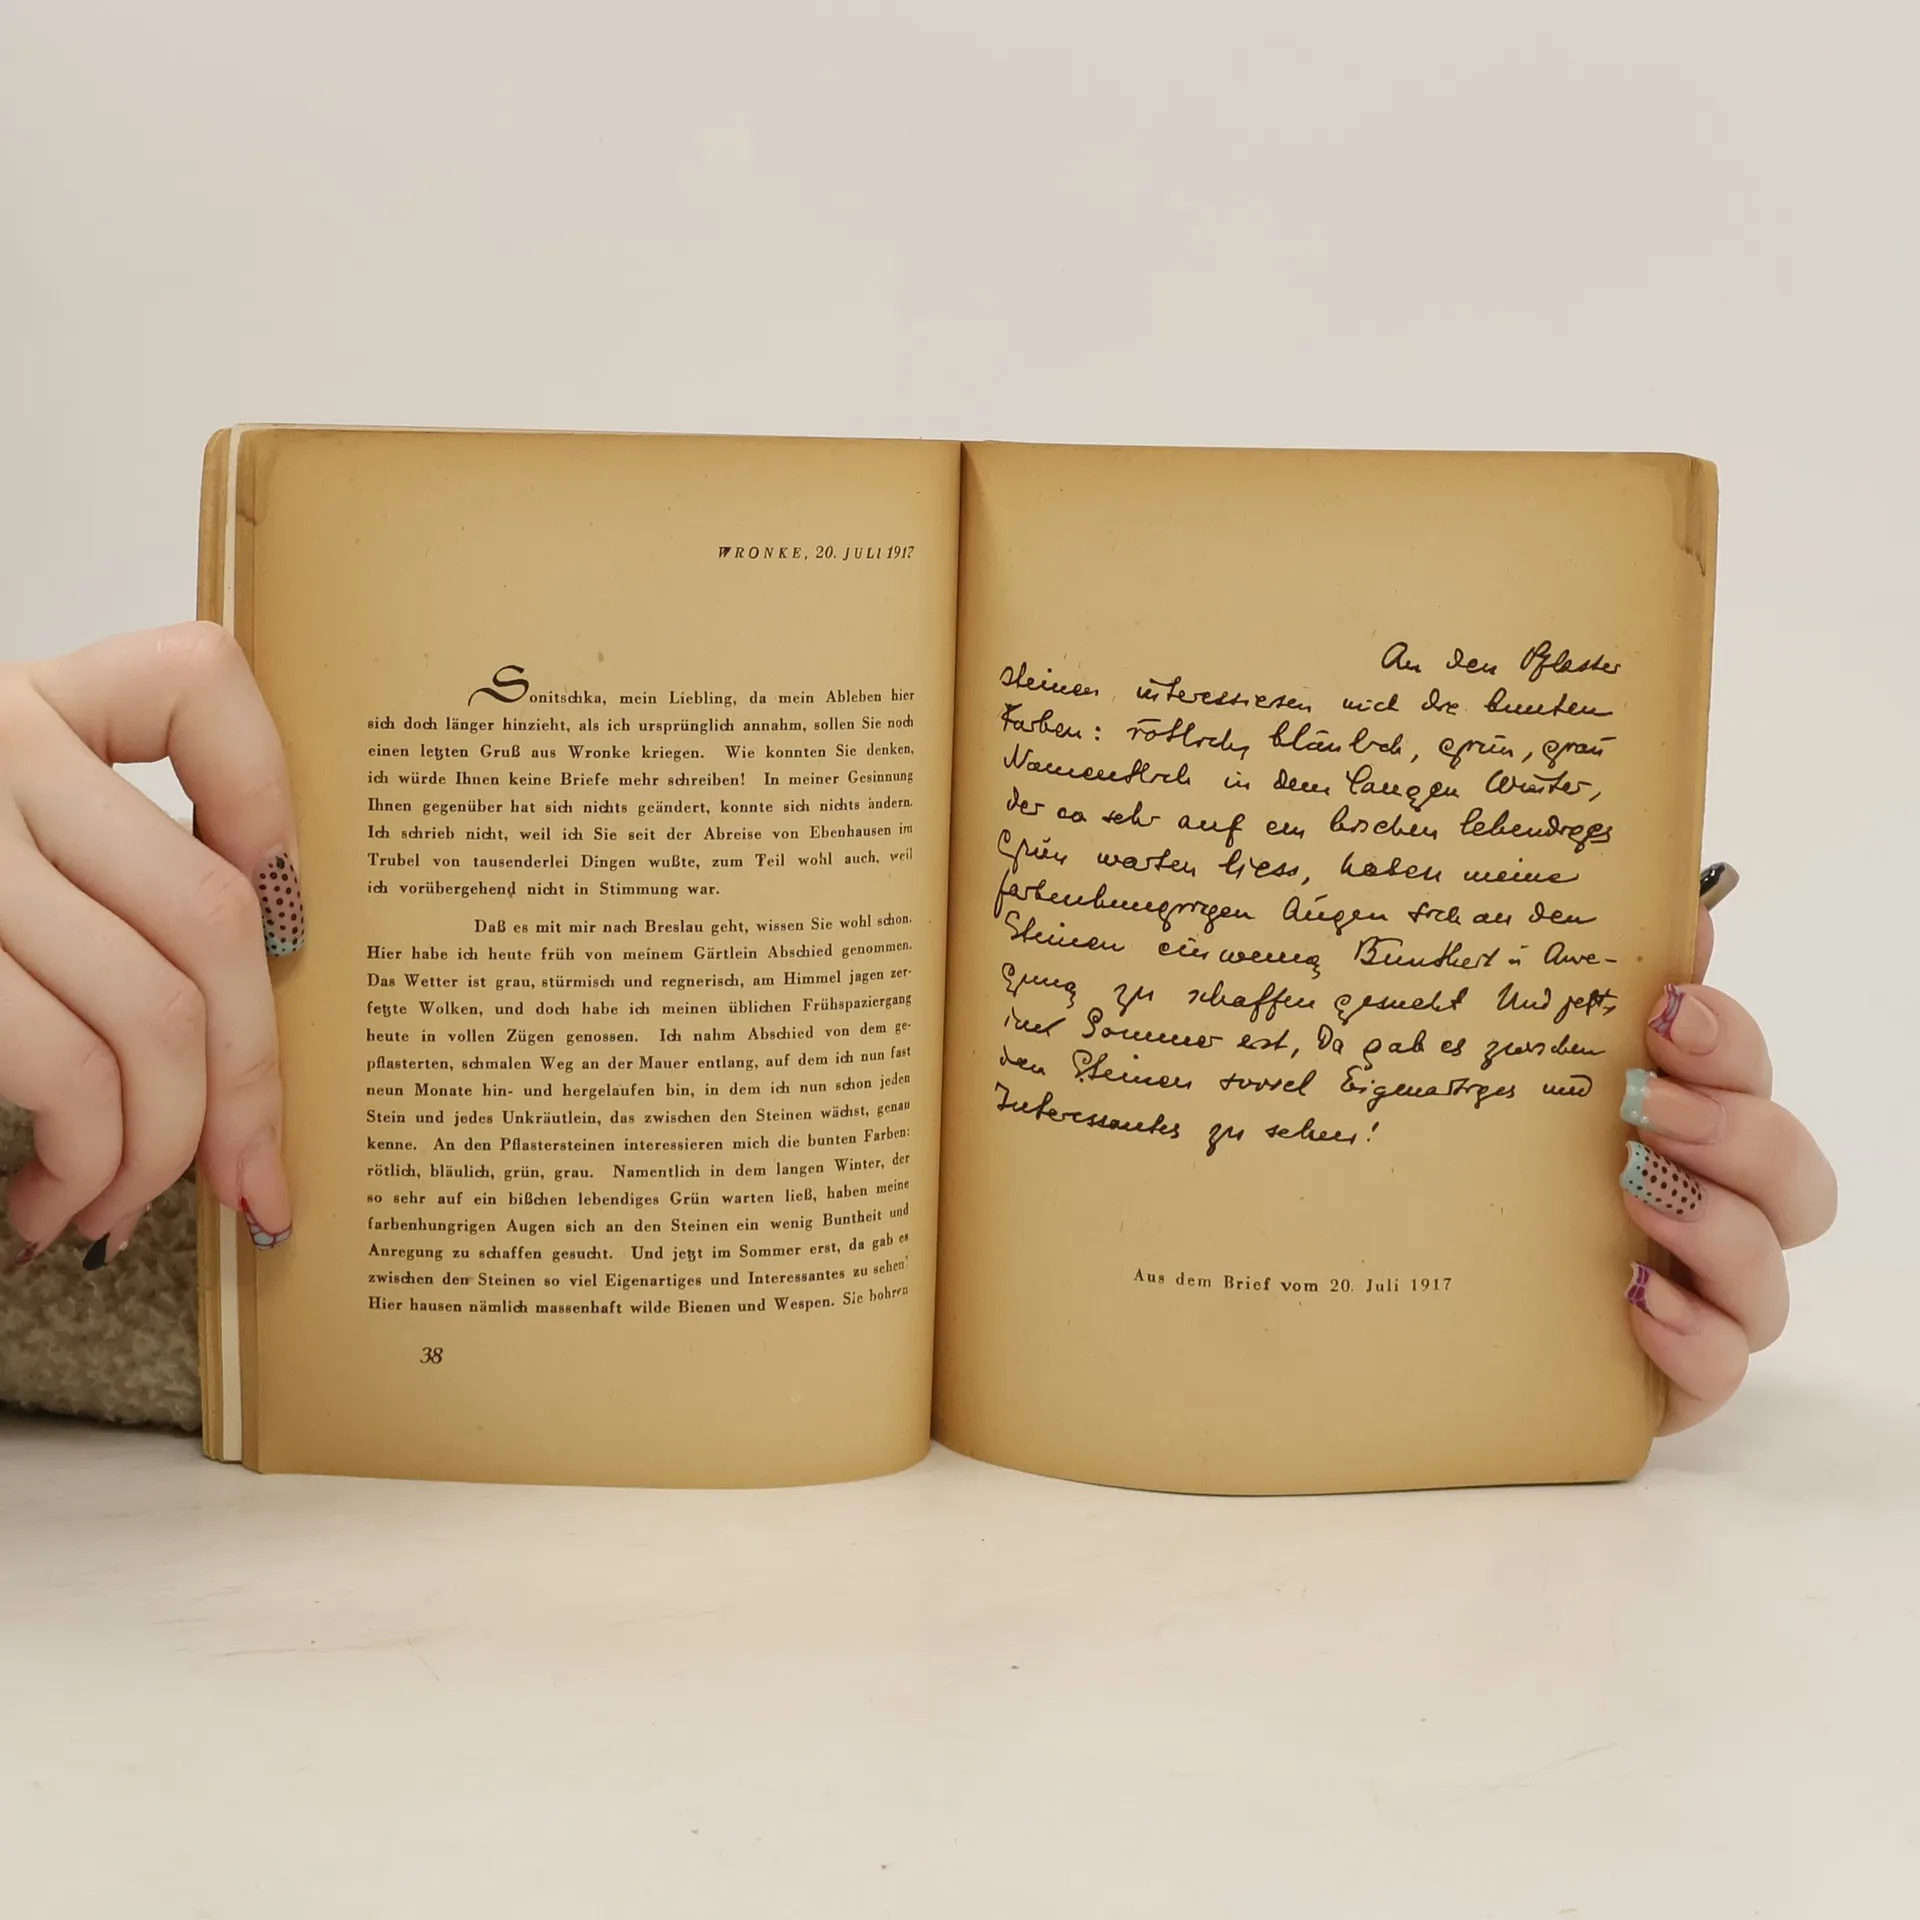 WRONKE, 20. JULI 1917
Sonitschka, mein Liebling, da mein Ableben hier
sich doch länger hinzieht, als ich ursprünglich annahm, sollen Sie noch
einen letzten Gruß aus Wronke kriegen. Wie konnten Sie denken,
ich würde Ihnen keine Briefe mehr schreiben! In meiner Gesinnung
Ihnen gegenüber hat sich nichts geändert, konnte sich nichts ändern.
Ich schrieb nicht, weil ich Sie seit der Abreise von Ebenhausen im
Trubel von tausenderlei Dingen wußte, zum Teil wohl auch, weil
ich vorübergehend nicht in Stimmung war.
Daß es mit mir nach Breslau geht, wissen Sie wohl schon.
Hier habe ich heute früh von meinem Gärtlein Abschied genommen.
Das Wetter ist grau, stürmisch und regnerisch, am Himmel jagen zer-
fetzte Wolken, und doch habe ich meinen üblichen Frühspaziergang
heute in vollen Zügen genossen. Ich nahm Abschied von dem ge-
pflasterten, schmalen Weg an der Mauer entlang, auf dem ich nun fast
neun Monate hin- und hergelaufen bin, in dem ich nun schon jeden
Stein und jedes Unkräutlein, das zwischen den Steinen wächst, genau
kenne. An den Pflastersteinen interessieren mich die bunten Farben:
rötlich, bläulich, grün, grau. Namentlich in dem langen Winter, der
so sehr auf ein bißchen lebendiges Grün warten ließ, haben meine
farbenhungrigen Augen sich an den Steinen ein wenig Buntheit und
Anregung zu schaffen gesucht. Und jetzt im Sommer erst, da gab es
zwischen den Steinen so viel Eigenartiges und Interessantes zu sehen!
Hier hausen nämlich massenhaft wilde Bienen und Wespen. Sie bohren
38
An den Pflaster
steinen interessieren mich die bunten
Farben: rötlich, bläulich, grün, grau
Namentlich in dem langen Winter,
der so sehr auf ein bischen lebendiges
Grün warten liess, haben meine
farbenhungrigen Augen sich an den
Steinen ein wenig Buntheit u Anre-
gung zu schaffen gesucht Und jetzt
im Sommer erst, da gab es zwischen
den Steinen soviel Eigenartiges und
Interessantes zu sehen!
Aus dem Brief vom 20. Juli 1917